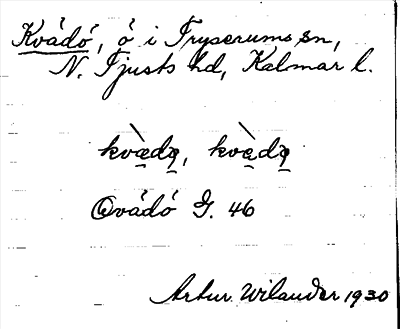 Kvädö, ö i Tryserums sn,
N. Tjusts hd, Kalmar l.
kvædə̀, kvædə̀
Qvädö G. 46
Artur Wilander 1930